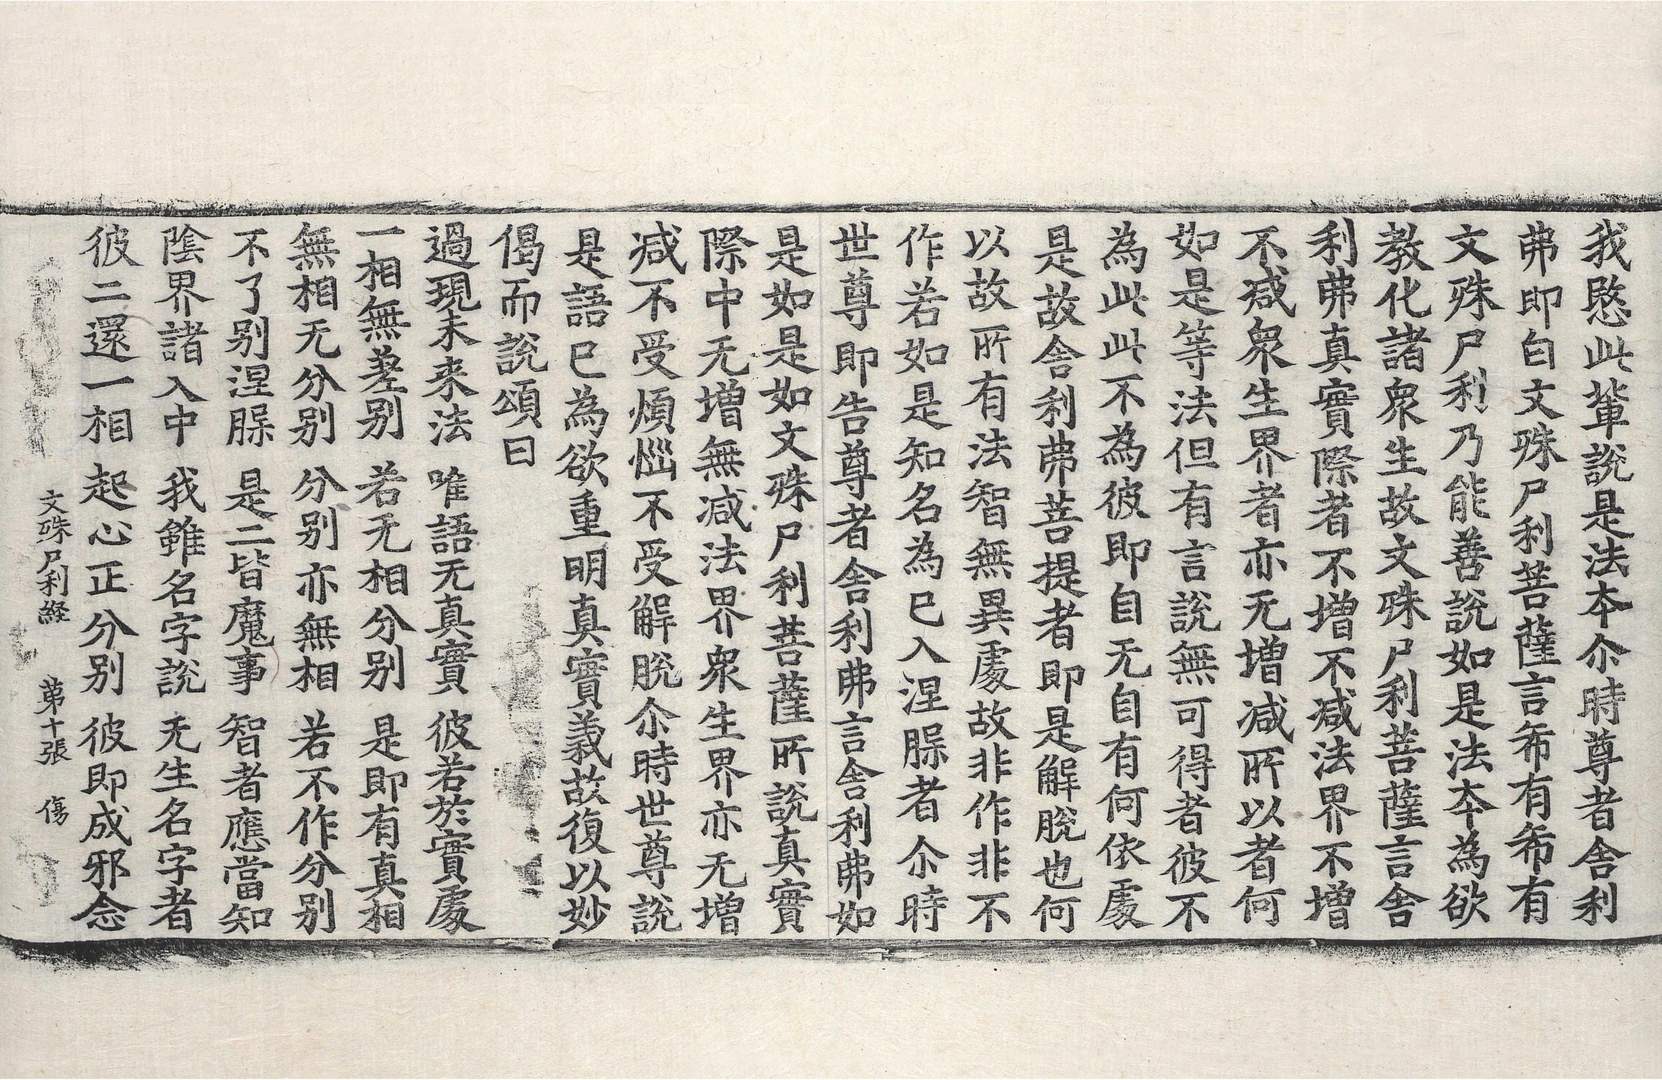 我愍此軰説是法夲尒時尊者舎利
弗即白文殊尸利菩薩言希有希有
文殊尸利乃能善説如是法夲為欲
教化諸衆生故文殊尸利菩薩言舎
利弗真實際者不增不减法界不增
不减衆生界者亦无增减所以者何
如是等法但有言説無可得者彼不
為此此不為彼即自无自有何依處
是故舎利弗菩提者即是解脱也何
以故所有法智無異處故非作非不
作若如是知名為已入涅槃者尒時
世尊即告尊者舎利弗言舎利弗如
是如是如文殊尸利菩薩所説真實
際中无增無减法界衆生界亦无增
减不受煩惱不受解脱尒時世尊説
是語已為欲重明真實義故復以妙
偈而説頌曰
過現未来法　唯語无真實　彼若於實處
一相無差别　若无相分别　是即有真相
無相无分别　分别亦無相　若不作分别
不了别涅槃　是二皆魔事　智者應當知
陰界諸入中　我雖名字説　无生名字者
彼二還一相　起心正分别　彼即成邪念
文殊尸利経　第十張　傷